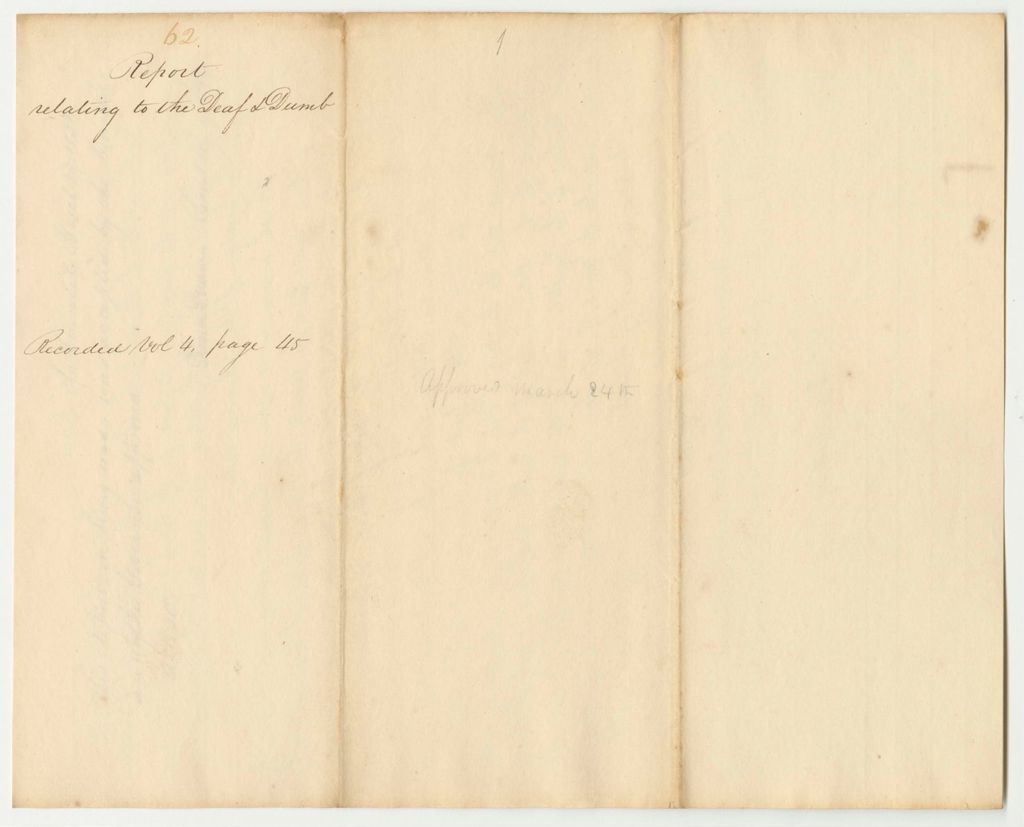 62.
Report
relating to the Deaf & Dumb
Recorded Vol 4, page 45
1
Approved March 24th